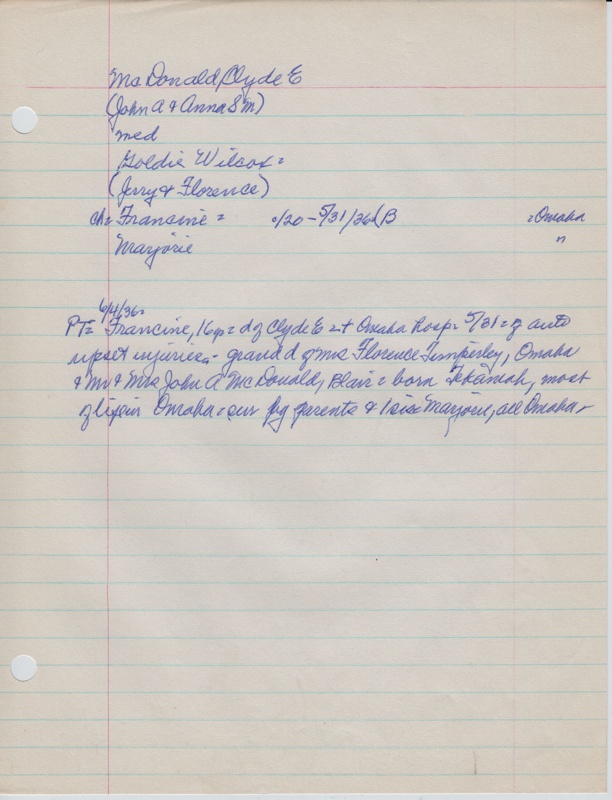 McDonald, Clyde E
(John A & Anna S M)
med
Goldie Wilcox =
(Jerry & Florence)
ch = Francine = c/20 - 5/31/36 (B = Omaha
Marjorie "
6/4/36 =
PT = Francine, 16 yr = d of Clyde E = + Omaha hosp = 5/31 = of auto
upset injuries = grand d of Mrs Florence Timperley, Omaha
& Mr & Mrs John A McDonald, Blair = born Tekamah, most
of life in Omaha = sur by parents & 1 sis Marjorie, all Omaha -